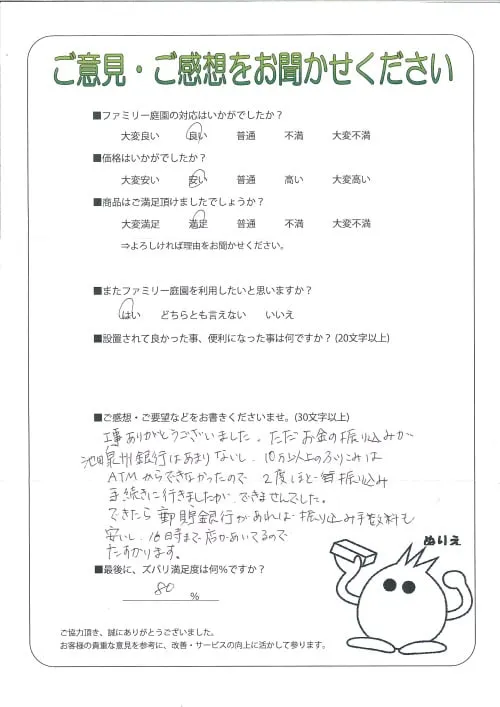 ご意見・ご感想をお聞かせください
■ファミリー庭園の対応はいかがでしたか？
大変良い 良い 普通 不満 大変不満
■価格はいかがでしたか？
大変安い 安い 普通 高い 大変高い
■商品はご満足頂けましたでしょうか？
大変満足 満足 普通 不満 大変不満
⇒よろしければ理由をお聞かせください。
■またファミリー庭園を利用したいと思いますか？
はい どちらとも言えない いいえ
■設置されて良かった事、便利になった事は何ですか？(20文字以上)
■ご感想・ご要望などをお書きくださいませ。(30文字以上)
工事ありがとうございました。ただお金の振り込みが
池田泉州銀行はあまりないし、10万以上のふりこみは
ATMからできなかったので 2度ほど 振り込み
手続きに行きましたが、できませんでした。
できたら郵貯銀行があれば 振り込み手数料も
安いし、16時まで店があいてるので
たすかります。
ぬりえ
■最後に、ズバリ満足度は何％ですか？
80 %
ご協力頂き、誠にありがとうございました。
お客様の貴重な意見を参考に、改善・サービスの向上に活かして参ります。